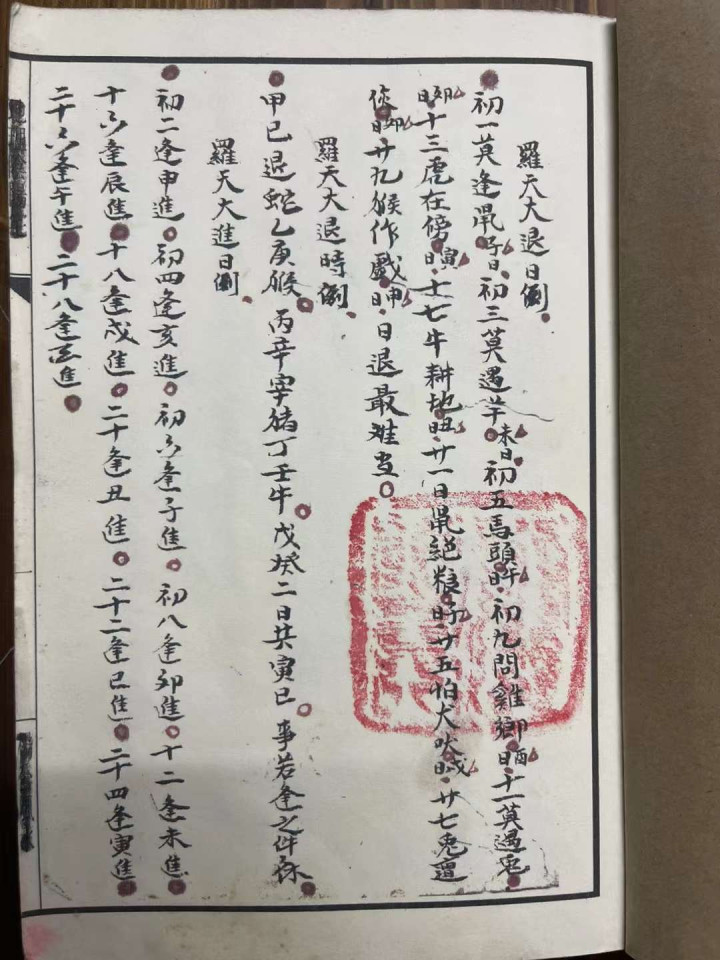 羅天大退日例
初一莫逢鼠子日初三莫遇羊未日初五馬頭午日初九問雞鄉酉日十一莫遇兎
卯日十三虎在傍寅日十七牛耕地丑日廿一日鼠絕粮子日廿五怕犬吠戌日廿七兎遭
卯日廿九猴作戲申日日退最难当
羅天大退時例
甲己退蛇乙庚猴丙辛寧猪丁壬牛戊癸二日共寅巳事若逢之件休
羅天大進日例
初二逢申進初四逢亥進初六逢子進初八逢卯進十二逢未進
十六逢辰進十八逢戌進二十逢丑進二十二逢巳進二十四逢寅進
二十六逢午進二十八逢